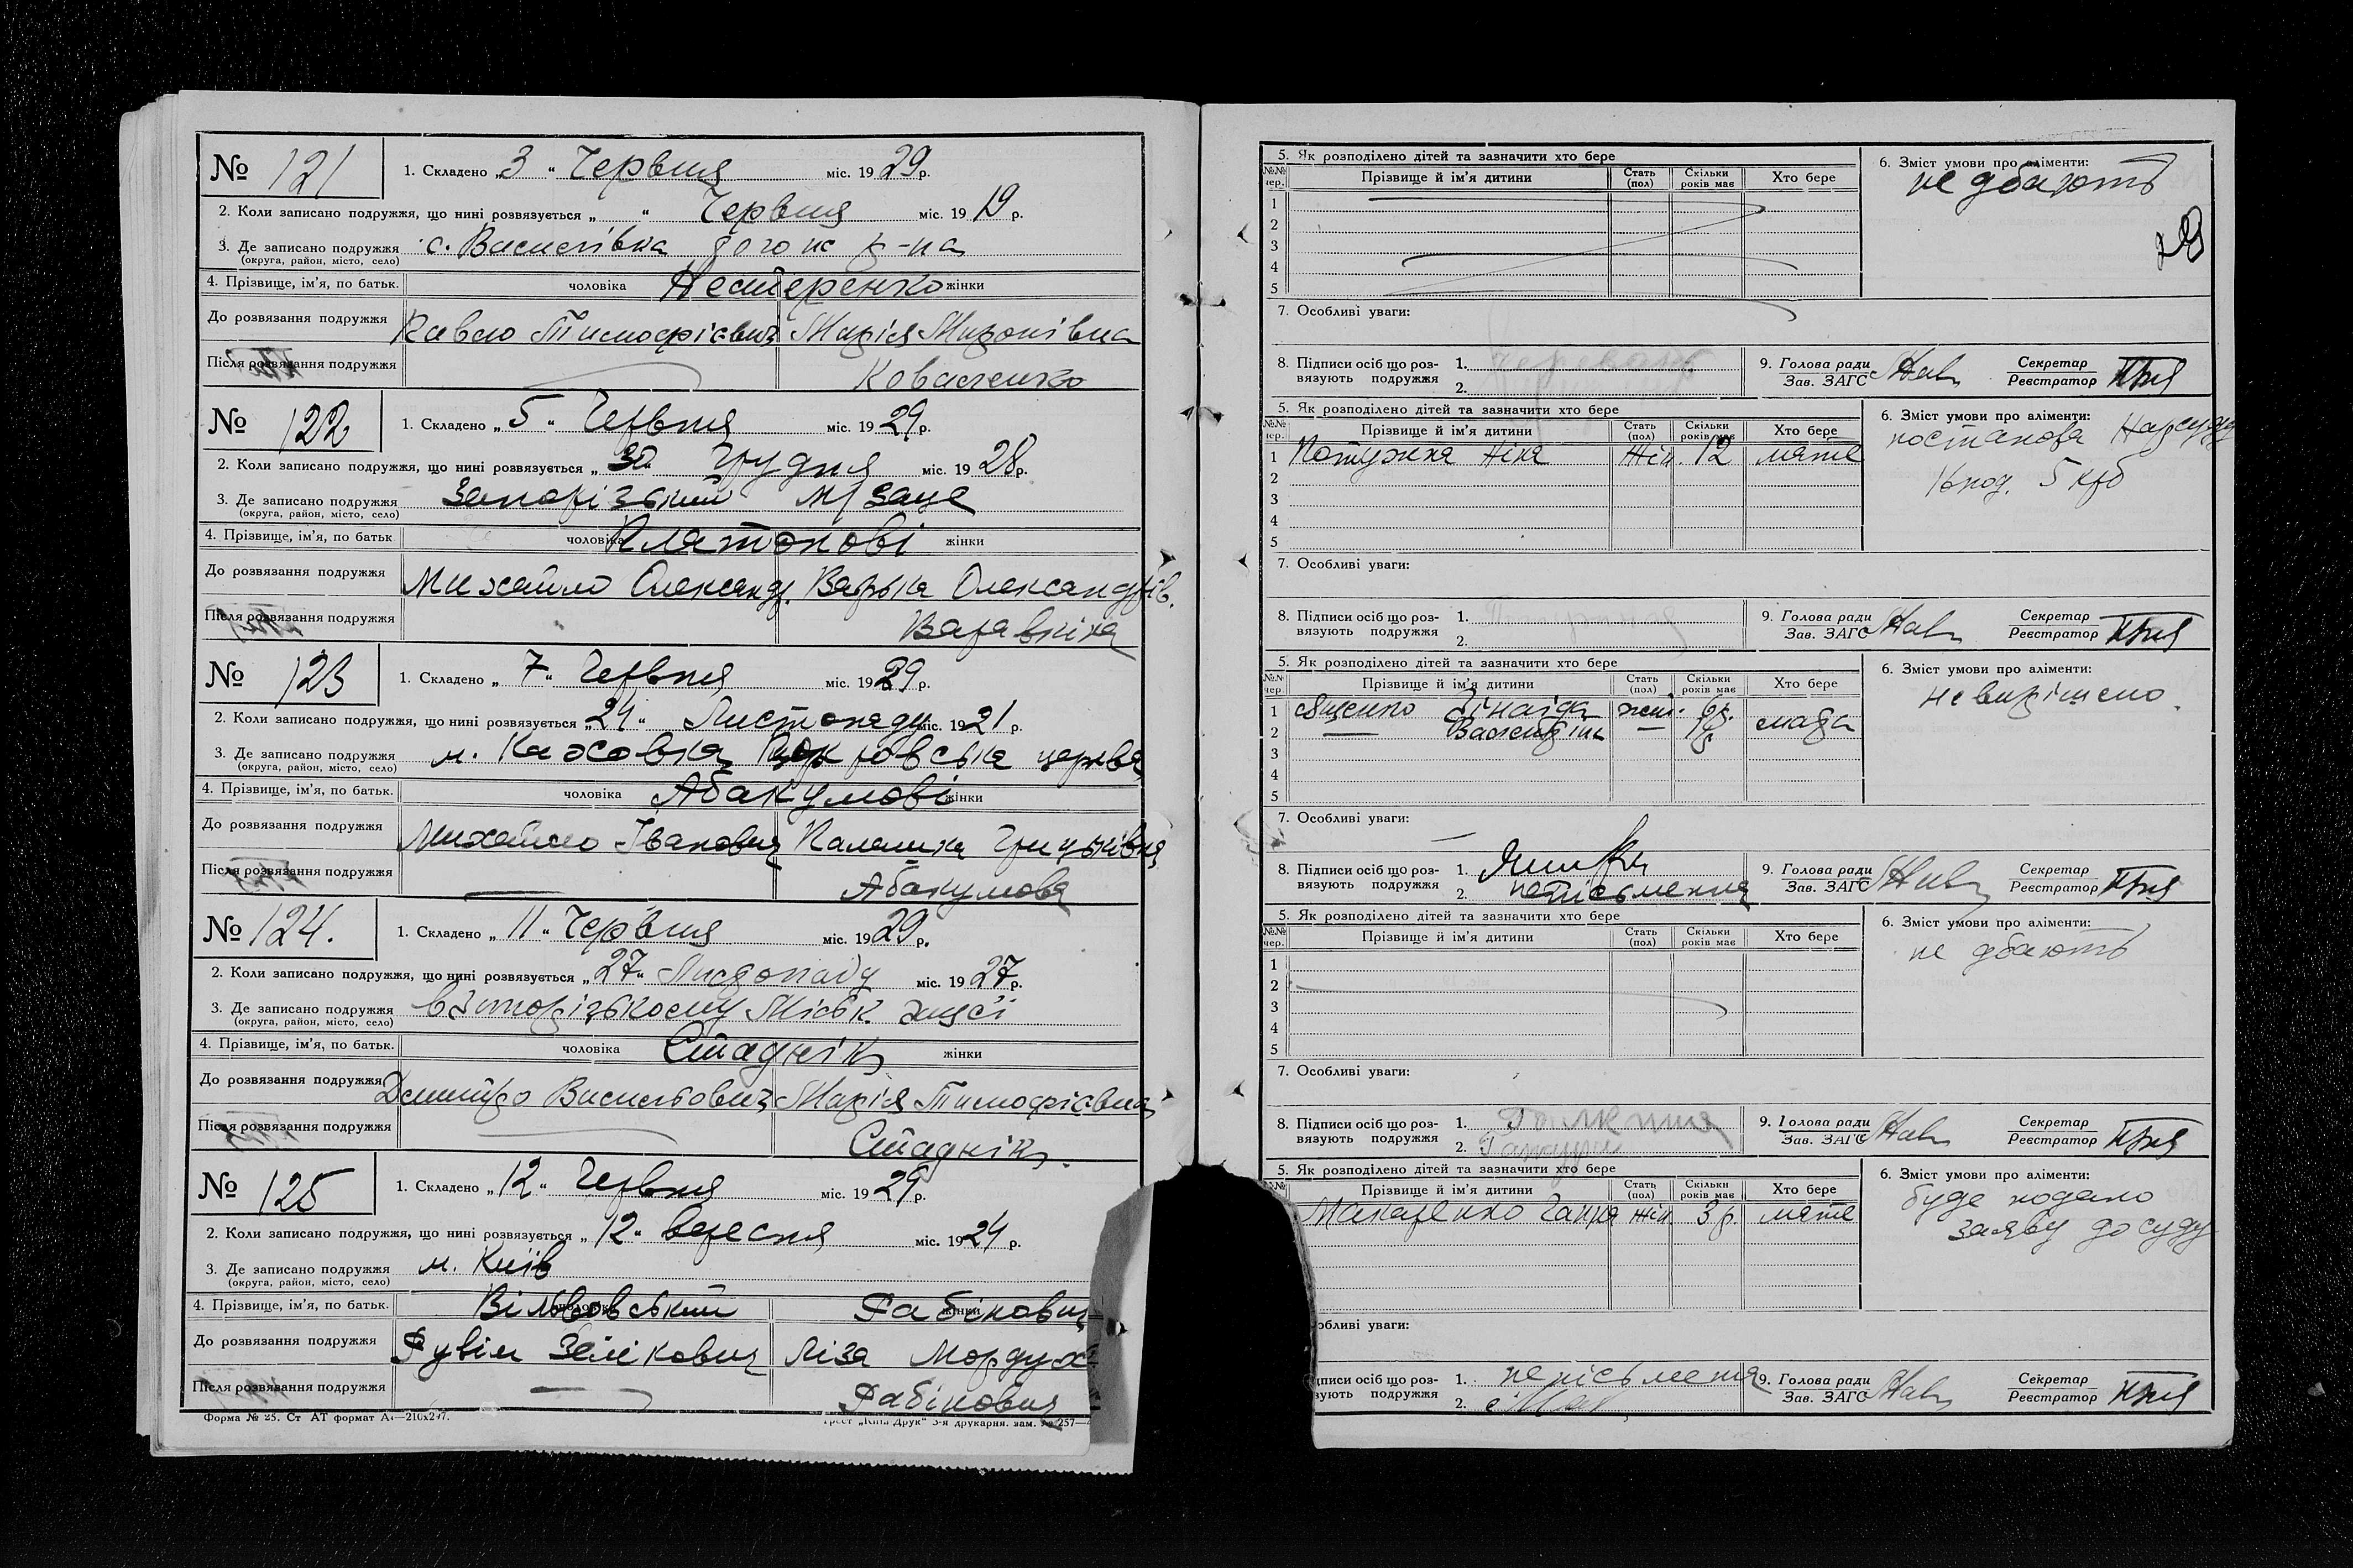 № 121
1. Складено „ 3 “ Червня міс. 19 29 р.
2. Коли записано подружжя, що нині розвязується „ “ Червня міс. 19 19 р.
3. Де записано подружжя с. Василівка р-на
(округа, район, місто, село)
4. Прізвище, ім’я, по батьк. чоловіка Нестеренко жінки
До розвязання подружжя Павло Тимофієвич Марія Миронівна
Після розвязання подружжя Коваленко
№ 122
1. Складено „ 5 “ Червня міс. 19 29 р.
2. Коли записано подружжя, що нині розвязується „ 30 “ Грудня міс. 19 28 р.
3. Де записано подружжя Запорізький м/загс
(округа, район, місто, село)
4. Прізвище, ім’я, по батьк чоловіка Платонові жінки
До розвязання подружжя Михайло Олександ. Варька Олександрів.
Після розвязання подружжя “ Варавкіна
№ 123
1. Складено „ 7 “ Червня міс. 19 29 р.
2. Коли записано подружжя, що нині розвязується „ 24 “ Листопаду міс. 19 21 р.
3. Де записано подружжя м. Каховка церква
(округа, район, місто, село)
4. Прізвище, ім’я, по батьк. чоловіка Абакумові жінки
До розвязання подружжя Михайло Іванович Палашка Грицьківна
Після розвязання подружжя Абакумова
№ 124.
1. Складено „ 11 “ Червня міс. 19 29 р.
2. Коли записано подружжя, що нині розвязується „ 27 “ Листопаду міс. 19 27 р.
3. Де записано подружжя в Запорізькому Міськ. загсі
(округа, район, місто, село)
4. Прізвище, ім’я, по батьк. чоловіка Стаднік жінки
До розвязання подружжя Дмитро Василович Марія Тимофієвна
Після розвязання подружжя Стаднік.
№ 125
1. Складено „ 12 “ Червня міс. 19 29 р.
2. Коли записано подружжя, що нині розвязується „ 12 “ вересня міс. 19 24 р.
3. Де записано подружжя м. Київ
(округа, район, місто, село)
4. Прізвище, ім’я, по батьк. Вільвовський Рабінович
До розвязання подружжя Рувім Зелікович Ліза Мордух
Після розвязання подружжя Рабінович
Форма № 25. Ст АТ формат А4—210x297.
Трест „Київ Друк“ 3-я друкарня. зам. № 257—
5. Як розподілено дітей та зазначити хто бере
6. Зміст умови про аліменти:
№№ чер. Прізвище й ім’я дитини Стать (пол) Скільки років має Хто бере
не дбають
1
2
3
4
5
7. Особливі уваги:
8. Підписи осіб що роз-
вязують подружжя
1.
2.
9. Голова ради
Зав. ЗАГС
Секретар
Реєстратор
5. Як розподілено дітей та зазначити хто бере
6. Зміст умови про аліменти:
№№ чер. Прізвище й ім’я дитини Стать (пол) Скільки років має Хто бере
постанова Нарсуду
5 крб
1 Потужня Ніна жін. 12 мати
2
3
4
5
7. Особливі уваги:
8. Підписи осіб що роз-
вязують подружжя
1.
2.
9. Голова ради
Зав. ЗАГС
Секретар
Реєстратор
5. Як розподілено дітей та зазначити хто бере
6. Зміст умови про аліменти:
№№ чер. Прізвище й ім’я дитини Стать (пол) Скільки років має Хто бере
не вирішено.
1 Яценко Зінаїда жін. 6р.
2 — —
3
4
5
7. Особливі уваги:
8. Підписи осіб що роз-
вязують подружжя
1.
2. неписьменна
9. Голова ради
Зав. ЗАГС
Секретар
Реєстратор
5. Як розподілено дітей та зазначити хто бере
6. Зміст умови про аліменти:
№№ чер. Прізвище й ім’я дитини Стать (пол) Скільки років має Хто бере
не дбають
1
2
3
4
5
7. Особливі уваги:
8. Підписи осіб що роз-
вязують подружжя
1.
2.
9. Голова ради
Зав. ЗАГС
Секретар
Реєстратор
5. Як розподілено дітей та зазначити хто бере
6. Зміст умови про аліменти:
№№ Прізвище й ім’я дитини Стать (пол) Скільки років має Хто бере
буде подано
заяву до суду
Макаренко Ганна жін. 3 р. мати
обливі уваги:
дписи осіб що роз-
зують подружжя
1. неписьменна
2.
9. Голова ради
Зав. ЗАГС
Секретар
Реєстратор